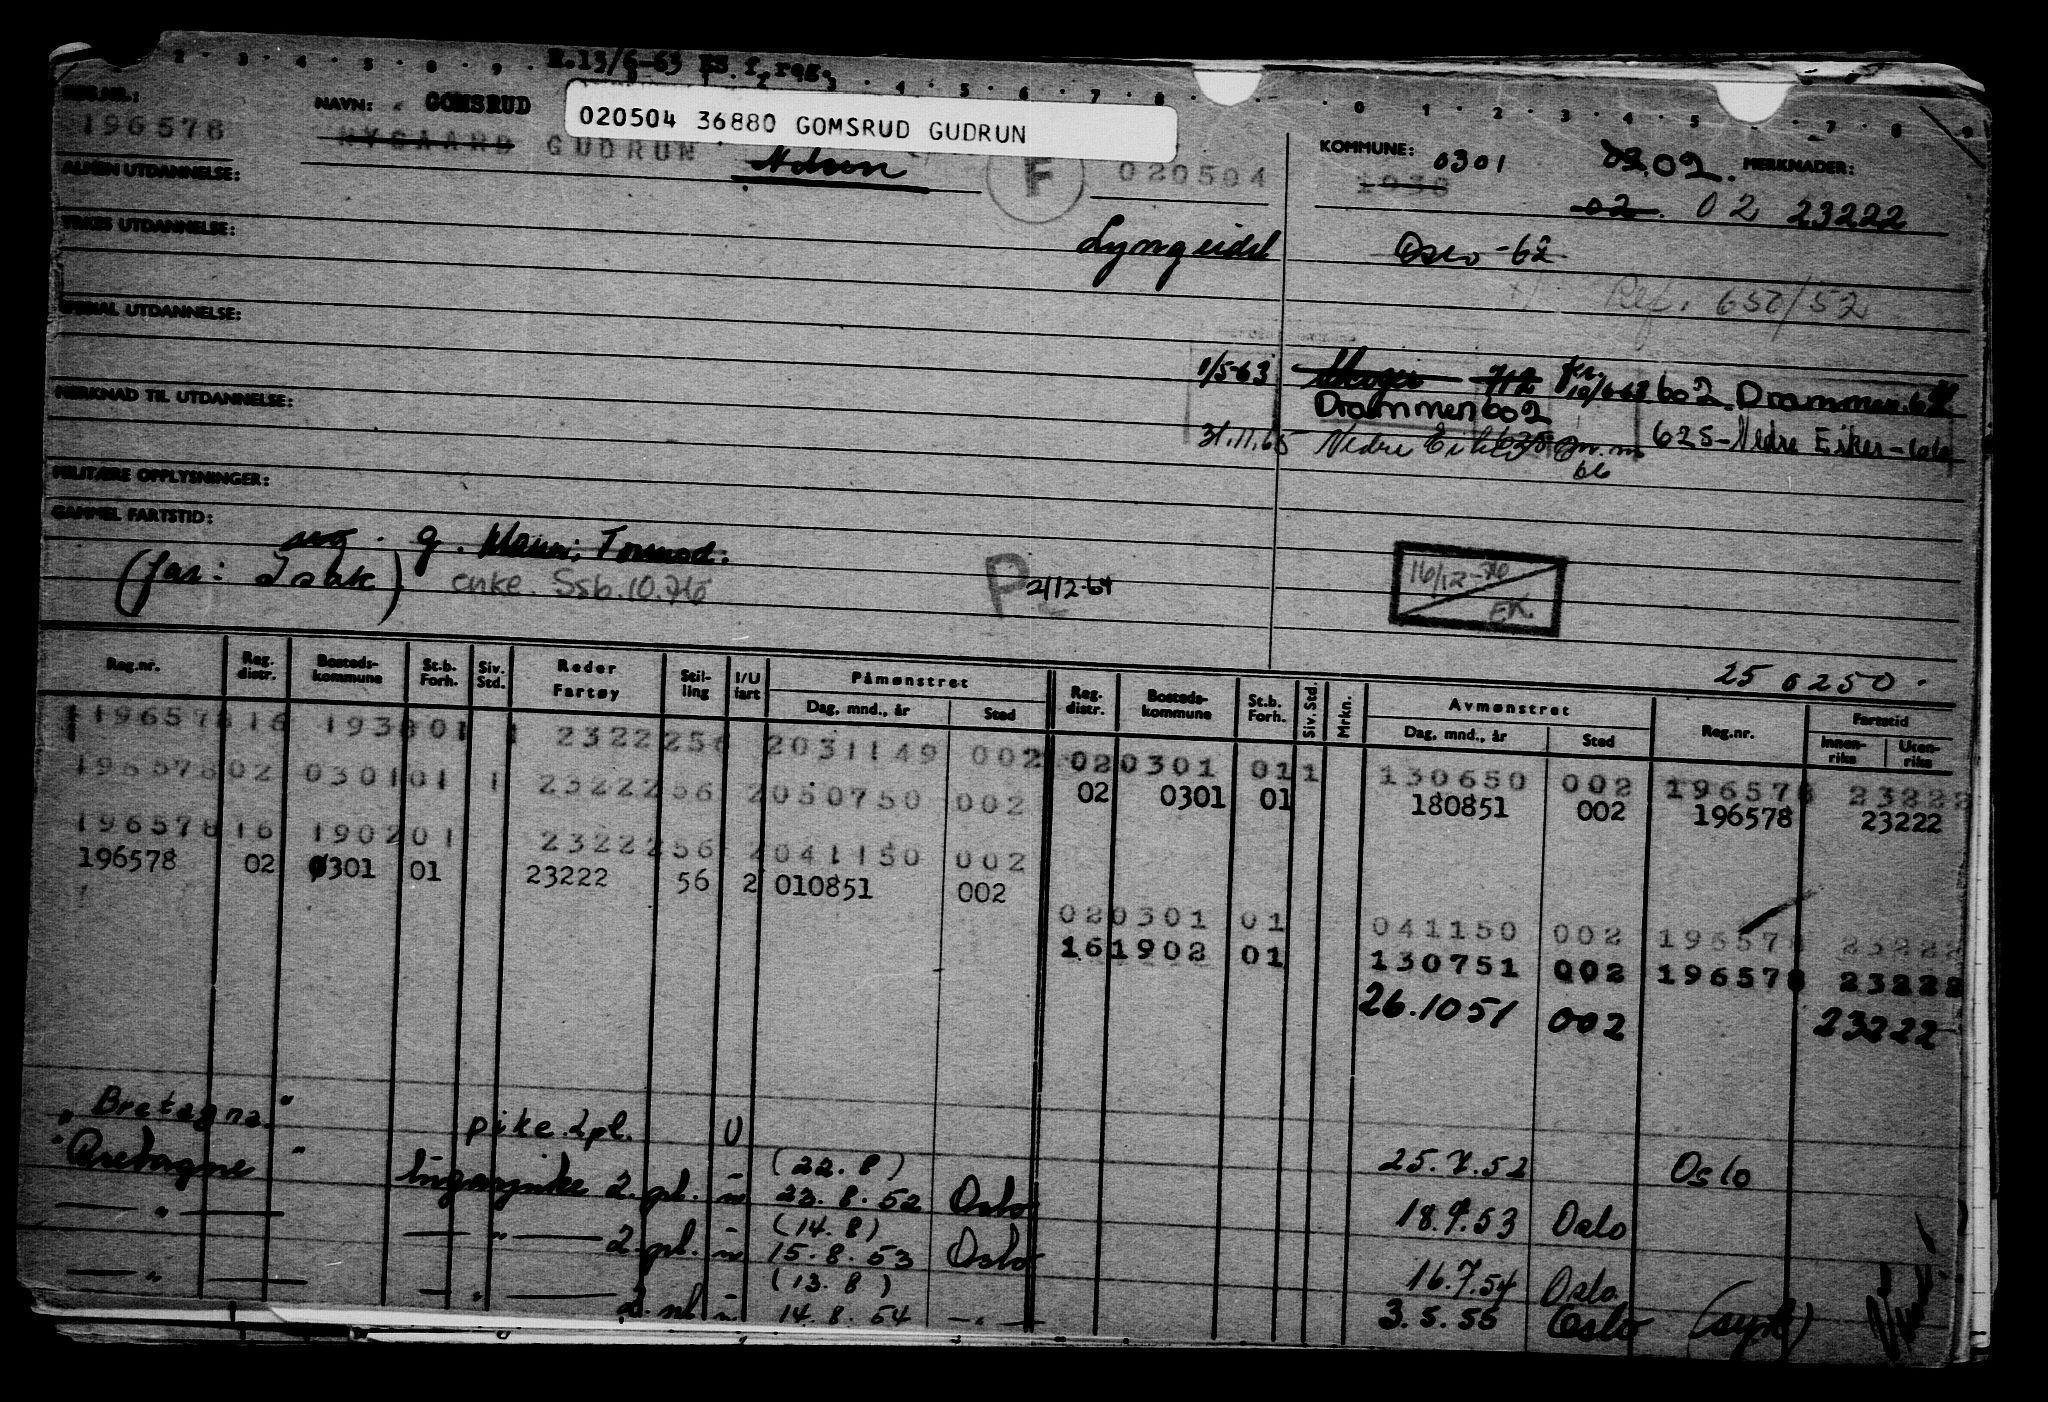 E.13/6-63 ES f. reg.
REG.NR.: NAVN: GOMSRUD
020504 36880 GOMSRUD GUDRUN
196578 NYGAARD GUDRUN F 020504
KOMMUNE: 0301 02. MERKNADER:
1938 02. 02 23222
ALMEN UTDANNELSE:
YRKES UTDANNELSE: Lyngseidet Oslo -62
Ref. 652/52
SPESIAL UTDANNELSE:
1/5-63 10/6-63 602 Drammen.
MERKNAD TIL UTDANNELSE: Drammen 602
31.11.65 Nedre Eiker 625 625 - Nedre Eiker -
MILITÆRE OPPLYSNINGER:
GAMMEL FARTSTID:
ug. g. Mann: Tormod.
(far: Isak) enke. Ssb. 10.76 P 2/12-64
16/12-76 EK.
25 6250.
Reg.nr. Reg. distr. Bosteds-kommune St.b. Forh. Siv. Std. Reder Fartøy Stil-ling I/U fart Påmønstret Dag, mnd., år Sted Reg. distr. Bosteds-kommune St.b. Forh. Siv. Std. Mrkn. Avmønstret Dag, mnd., år Sted Reg.nr. Fartstid Innen-riks Uten-riks
196578 16 1938 01 1 23222 56 2 031149 002 02 0301 01 1 130650 002 196578 23222
196578 02 0301 01 1 23222 56 2 050750 002 02 0301 01 180851 002 196578 23222
196578 16 1902 01 23222 56 2 041150 002
196578 02 0301 01 23222 56 2 010851 002
02 0301 01 041150 002 196578 23222
16 1902 01 130751 002 196578 23222
26.10 51 002 23222
"Bretagne" pike 2pl. U 25.7.52 Oslo
"Bretagne" lugarpike 2. pl. u. (22.8) 23.8.52 Oslo 18.7.53 Oslo
— " — — " — 2. pl. u. (14.8) 15.8.53 Oslo 16.7.54 Oslo.
— " — — " — 2. pl. u. (13.8) 14.8.54 — " — 3.5.55 Oslo (syk)